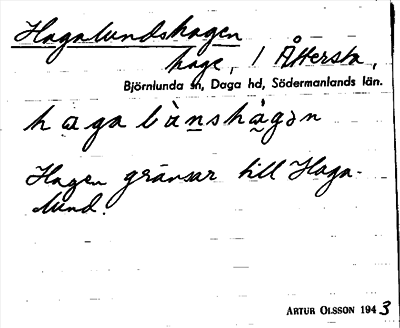 Hagalundshagen
hage, / Åttersta,
Björnlunda sn, Daga hd, Södermanlands län.
h a g a l ù n s h à g ə n
Hagen gränsar till Haga-
lund.
ARTUR OLSSON 1943